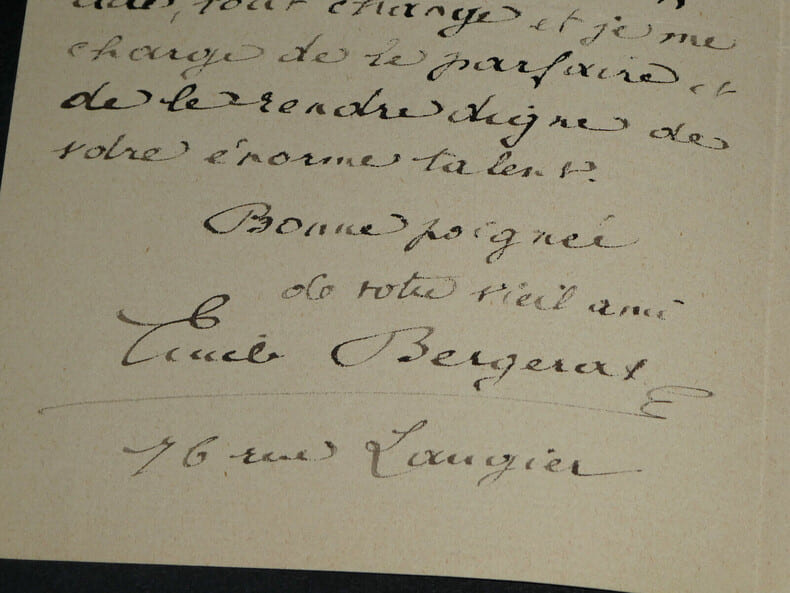 tout change et je me
charge de le parfaire et
de le rendre digne de
votre énorme talent.
Bonne poignée
de votre vieil ami
Emile Bergerat
76 rue Laugier